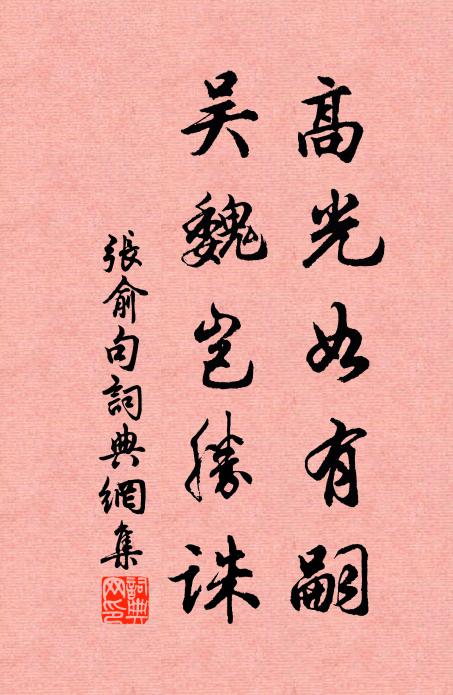 高光如有嗣
吴魏岂勝誅
張俞句詞典網集
詞典網印